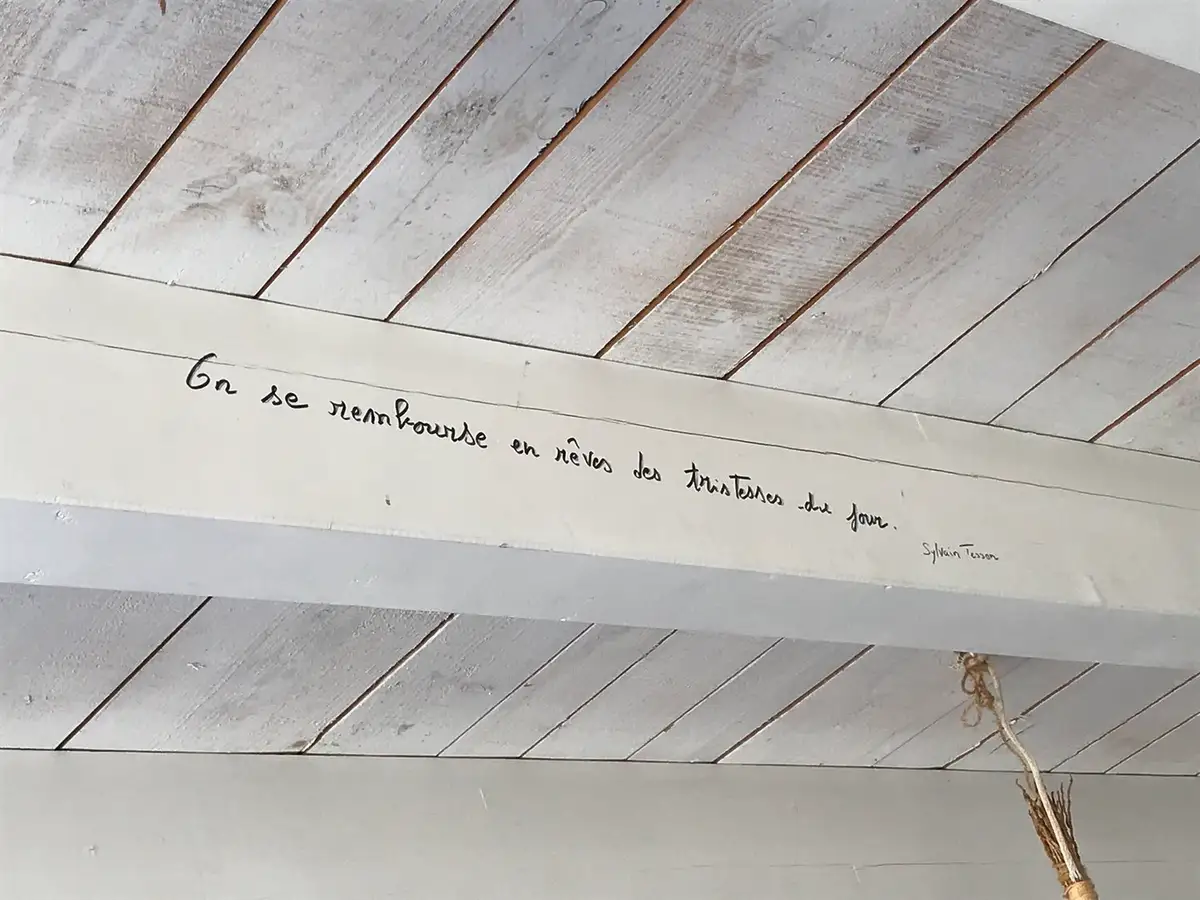 On se rembourse en rêves des tristesses du jour.
Sylvain Tesson